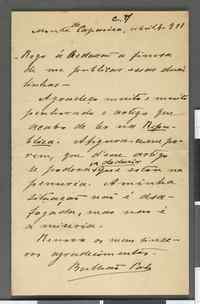 Monte de Caparica, abril 4. 911
Rogo á Redacção a fineza
de me publicar essas duas
linhas —
Agradeço muito e muito
penhorado o artigo que
acabo de ler na Repu-
blica. Afigura-se-me po-
rem, que d'esse artigo
se poderá deduzir que estou na
penuria. A minha
situação não é desa-
fogada, mas não é
a miseria.
Renova os meus since-
ros agradecimentos.
Bulhão Pato